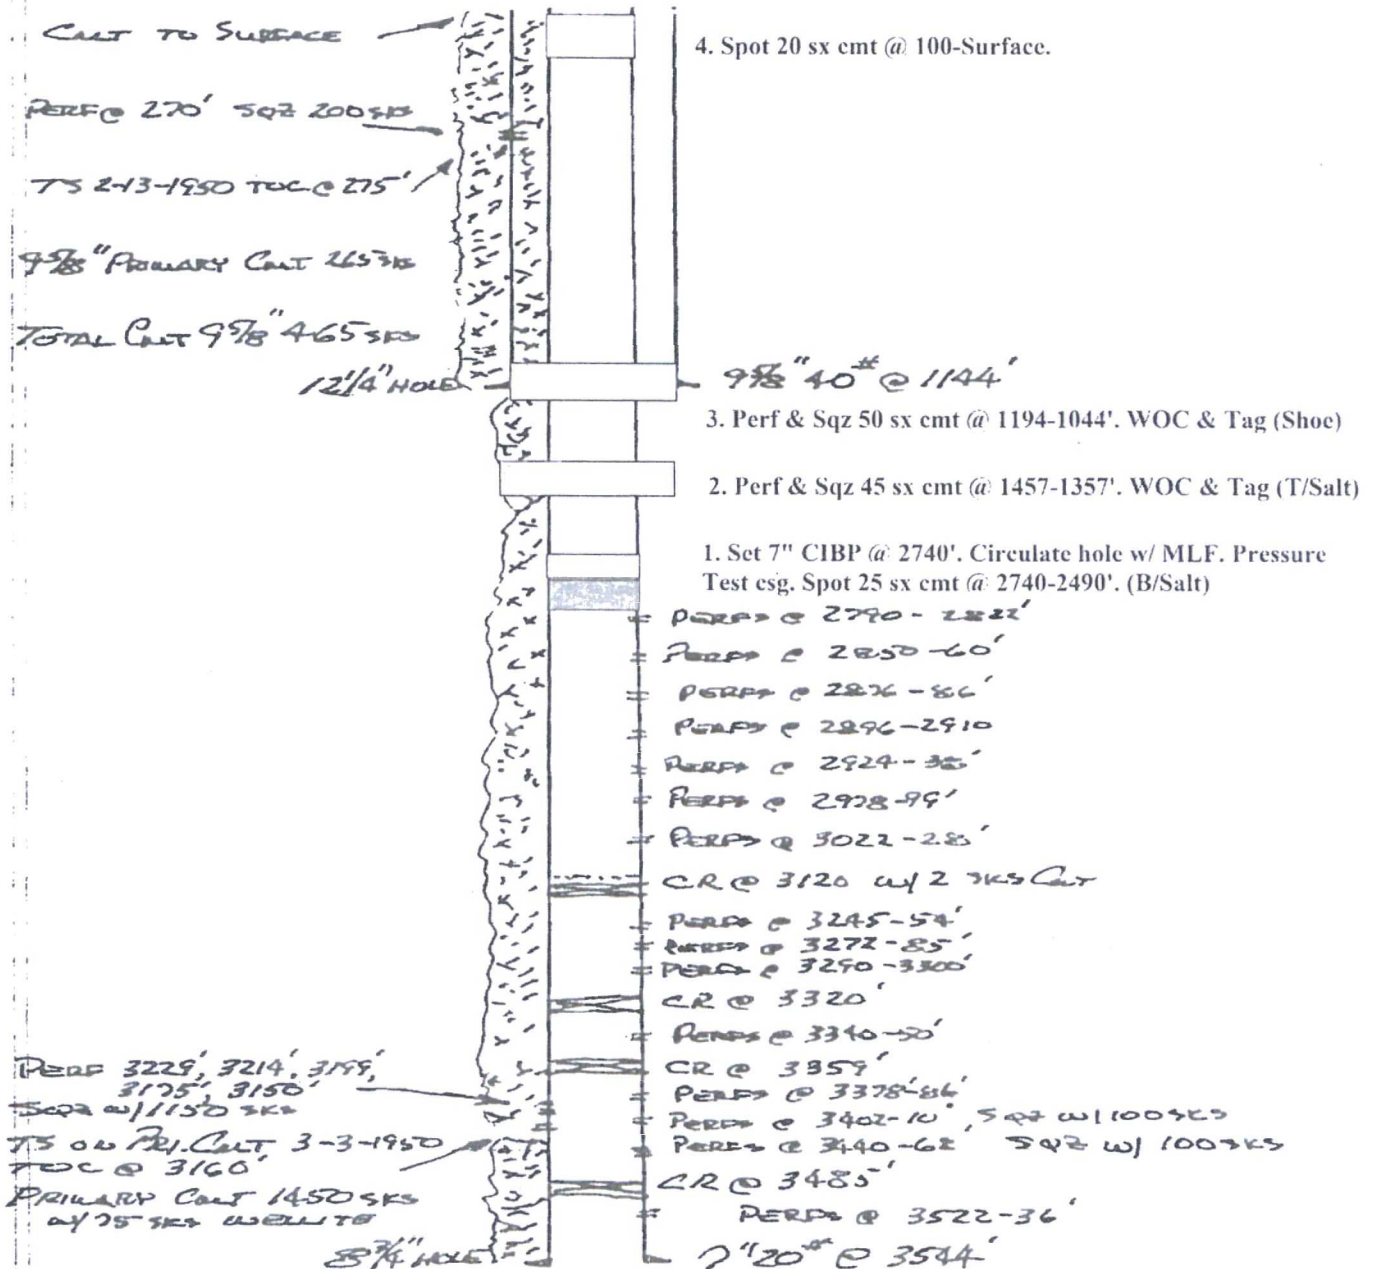 CMT TO SURFACE
4. Spot 20 sx cmt @ 100-Surface.
PERF @ 270' SQZ 200 SKS
TS 2-13-1950 TOC @ 275'
9 5/8" PRIMARY CMT 265 SKS
TOTAL CMT 9 5/8" 465 SKS
12 1/4" HOLE
9 5/8" 40# @ 1144'
3. Perf & Sqz 50 sx cmt @ 1194-1044'. WOC & Tag (Shoe)
2. Perf & Sqz 45 sx cmt @ 1457-1357'. WOC & Tag (T/Salt)
1. Set 7" CIBP @ 2740'. Circulate hole w/ MLF. Pressure
Test csg. Spot 25 sx cmt @ 2740-2490'. (B/Salt)
PERFS @ 2790 - 2822'
PERFS @ 2850-60'
PERFS @ 2876-86'
PERFS @ 2896-2910
PERFS @ 2924-
PERFS @ 2978-99'
PERFS @ 3022-28'
CR @ 3120 w/ 2 SKS CMT
PERFS @ 3245-54'
PERFS @ 3272-85'
PERFS @ 3290-3300'
CR @ 3320'
PERFS @ 3340-50'
CR @ 3359'
PERFS @ 3378'-86'
PERFS @ 3402-10', SQZ W/ 100 SKS
PERFS @ 3440-62 SQZ W/ 100 SKS
CR @ 3485'
PERFS @ 3522-36'
PERF 3229', 3214', 3199',
3175', 3150'
SQZ w/ 1150 SKS
TS ON PRI. CMT 3-3-1950
TOC @ 3160'
PRIMARY CMT 1450 SKS
w/ 75 SKS
8 3/4" HOLE
7" 20# @ 3544'